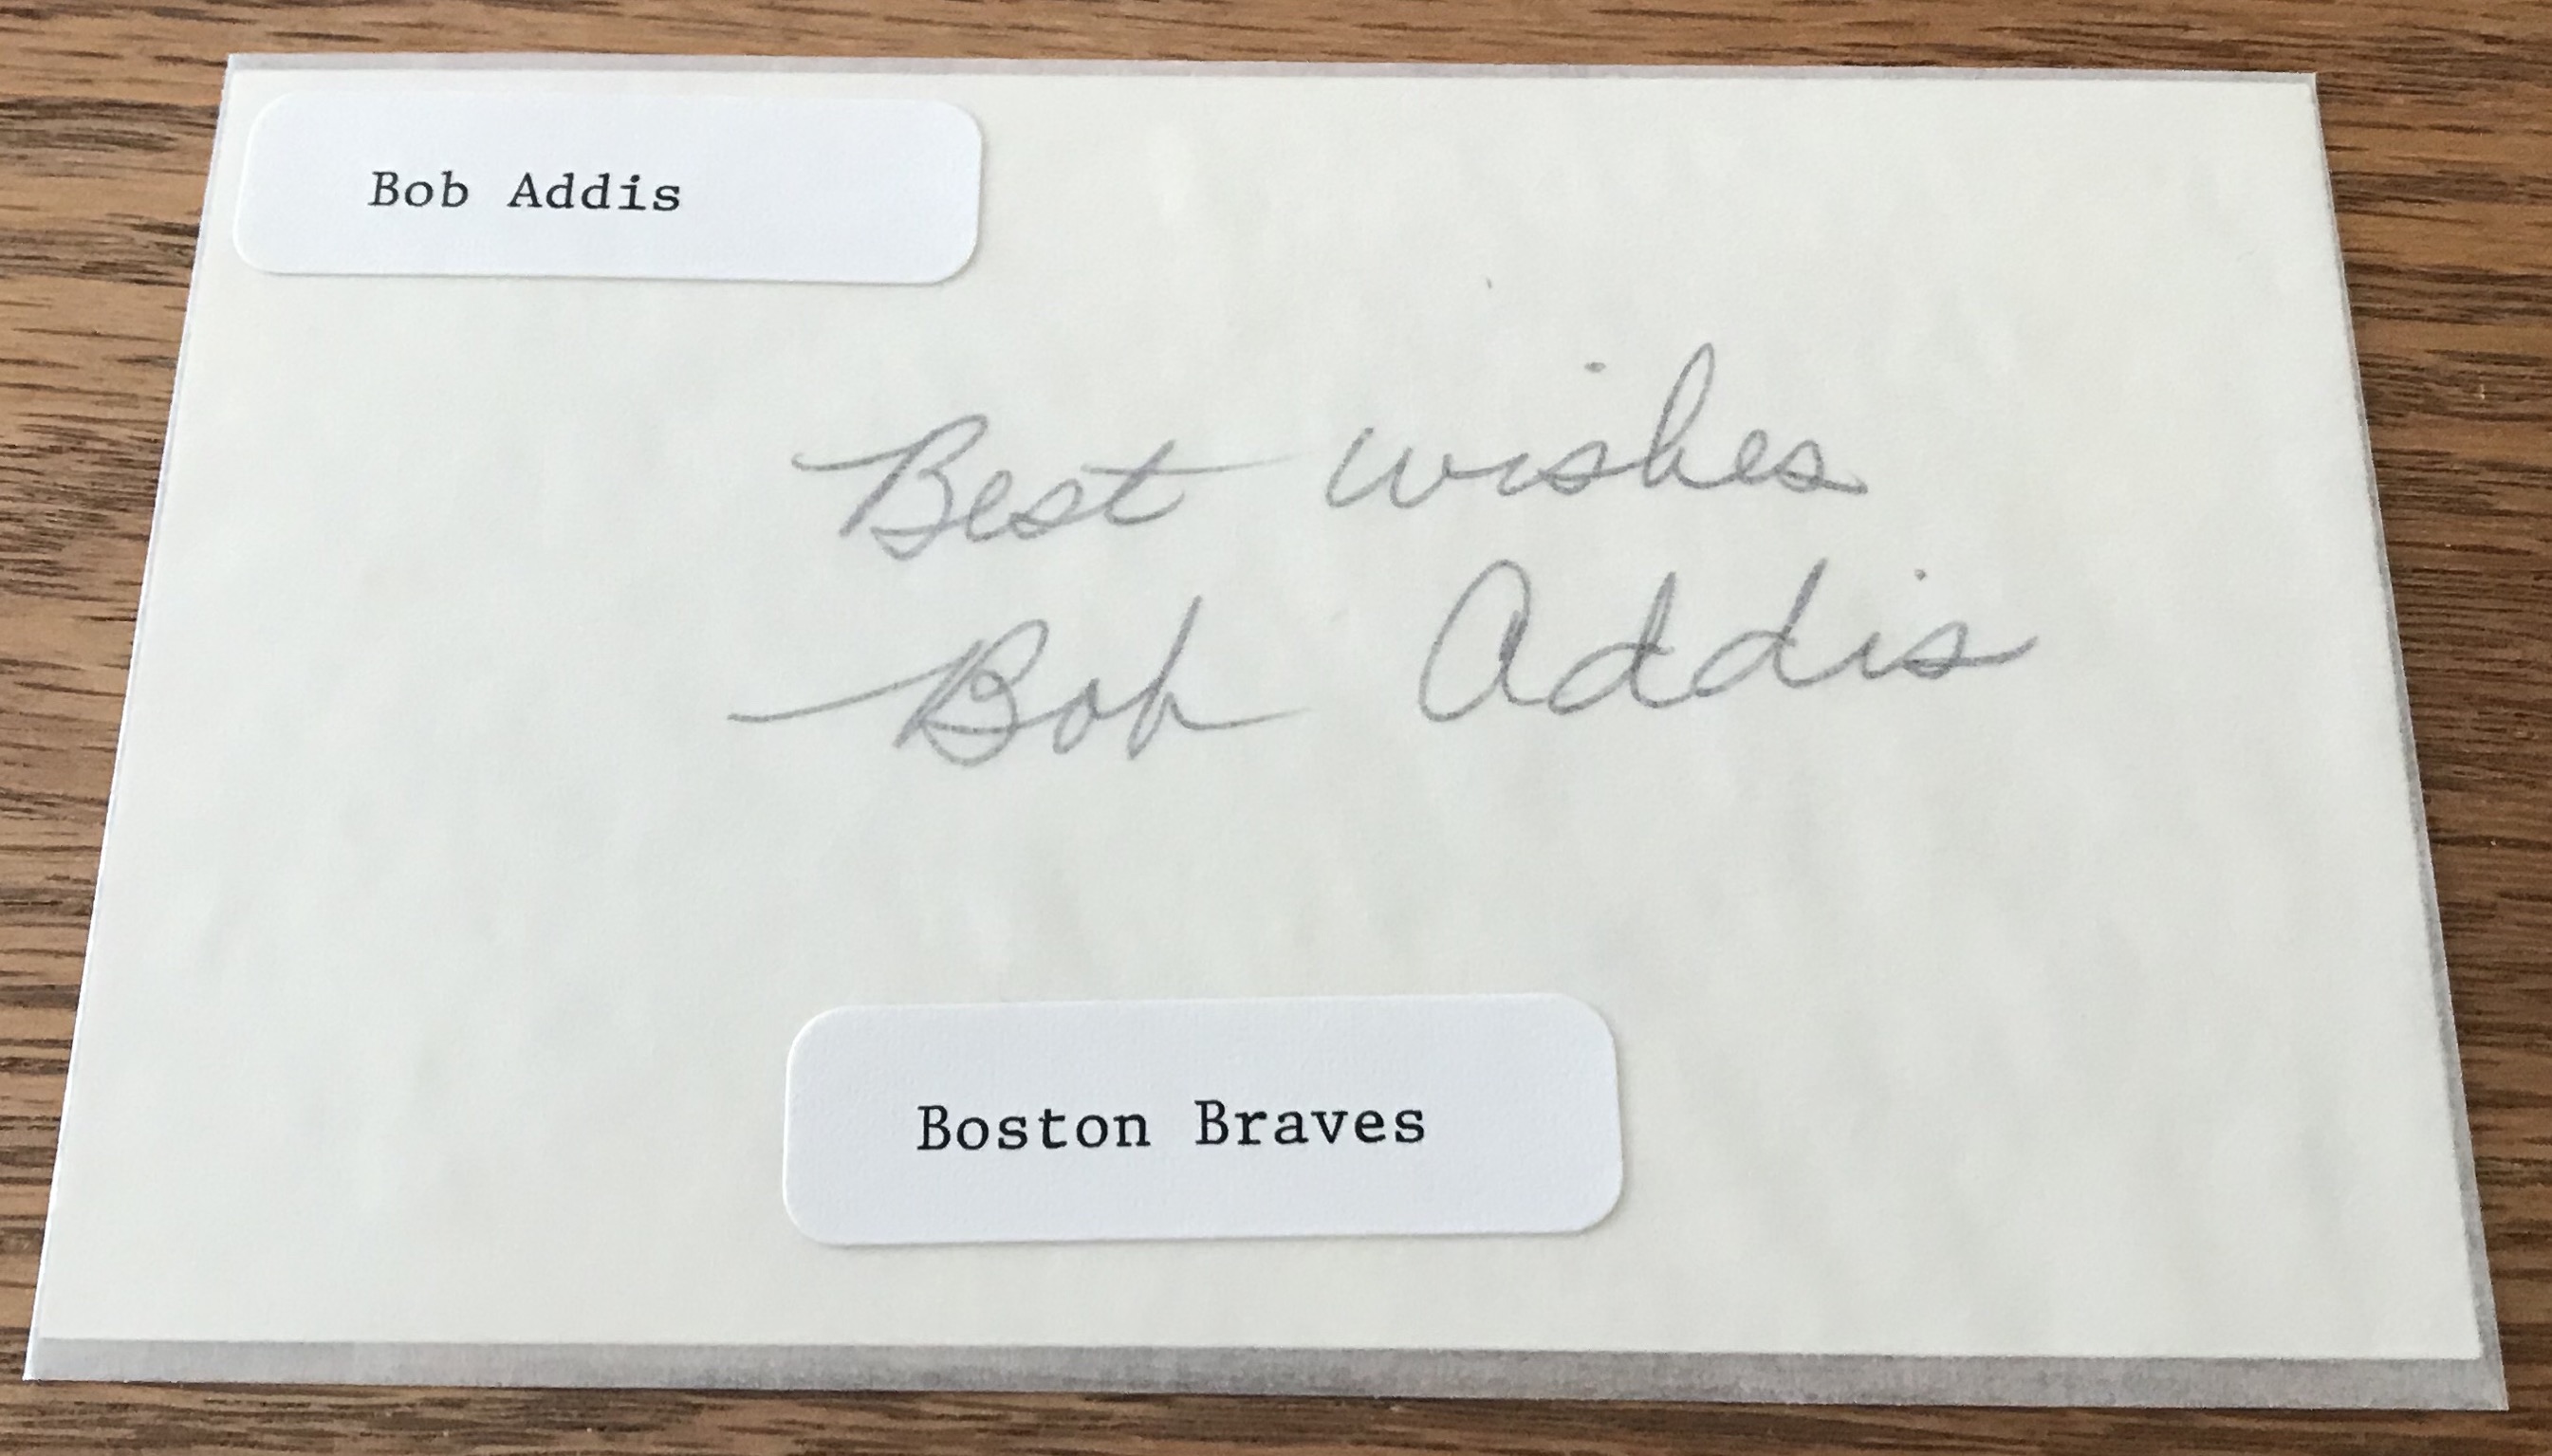 Bob Addis
Best wishes
Bob Addis
Boston Braves